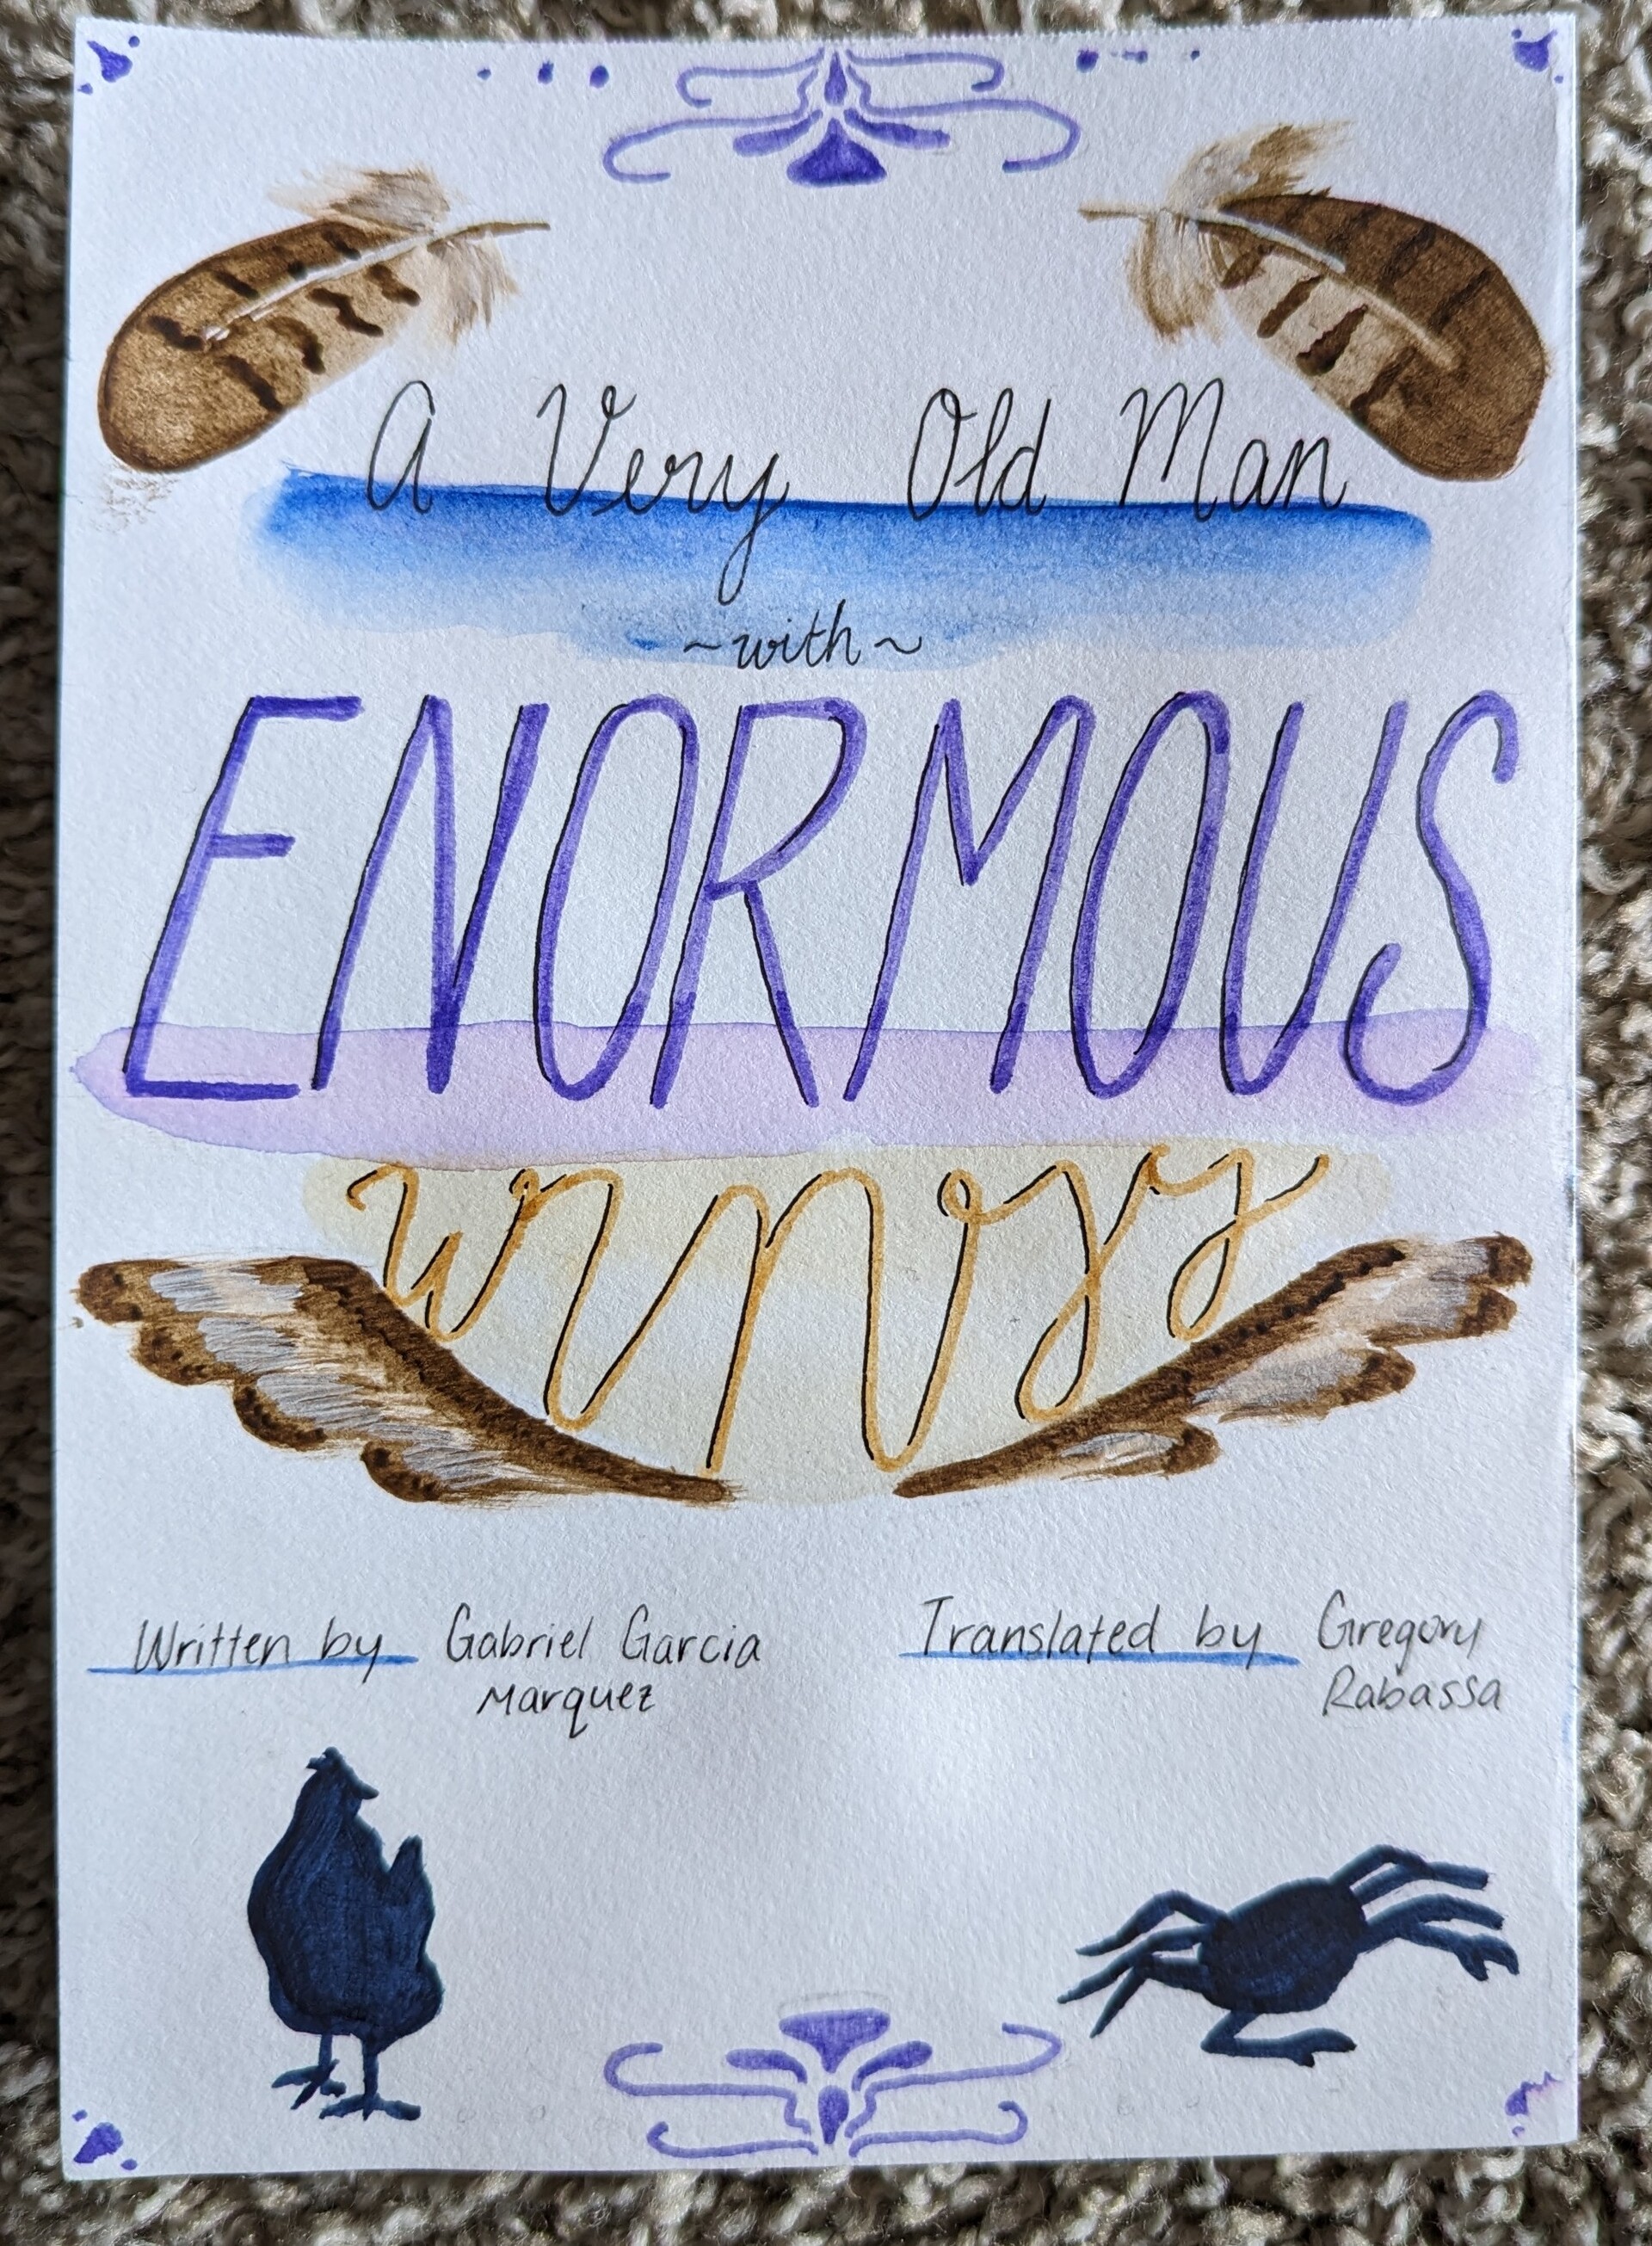 A Very Old Man
~with~
ENORMOUS
wings
Written by Gabriel Garcia
Marquez
Translated by Gregory
Rabassa